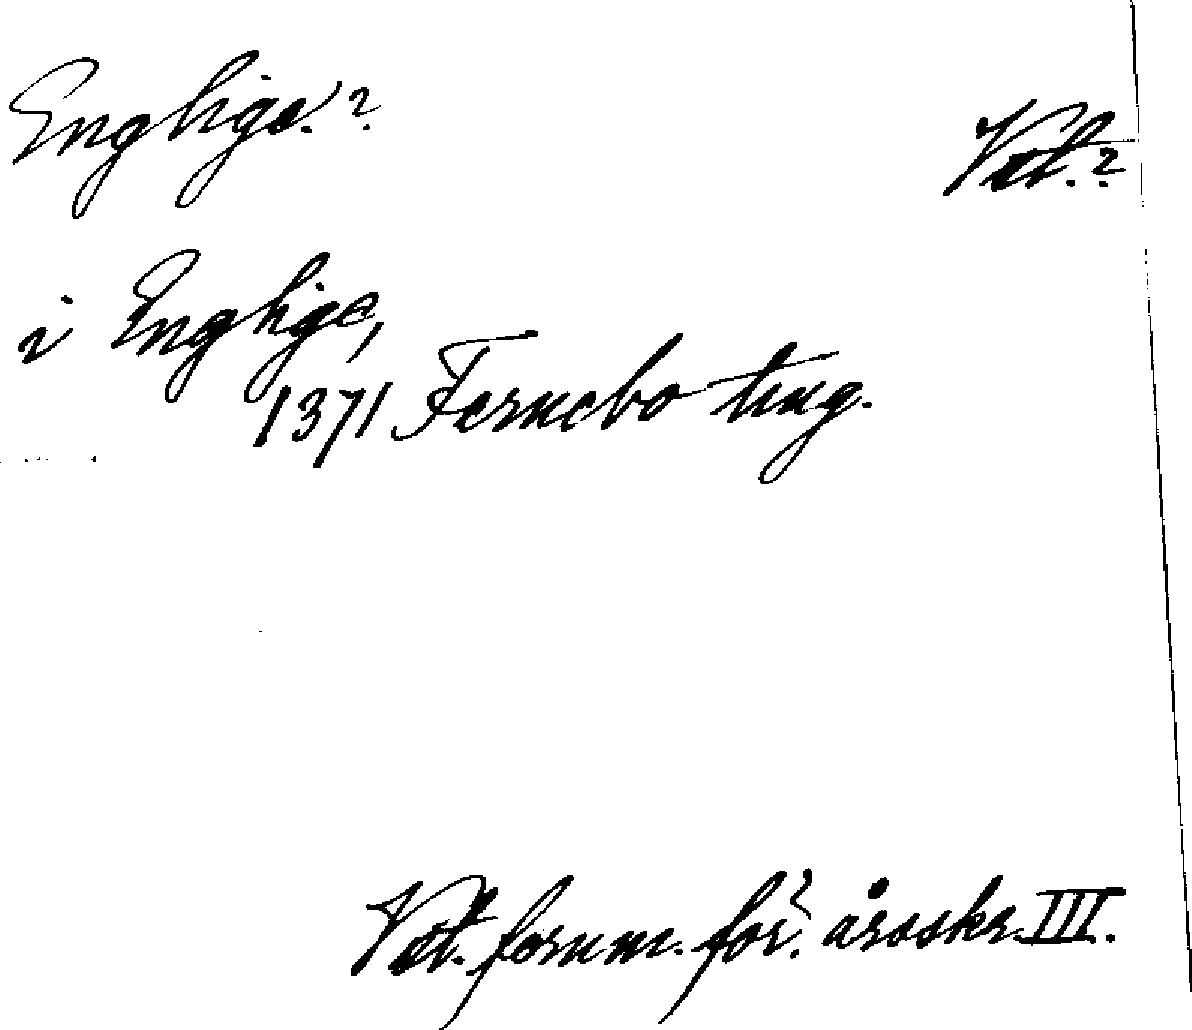 Englige.?
Vstl.?
i Englige,
1371 Fernebo ting.
Vstl. fornm. för. årsskr. III.